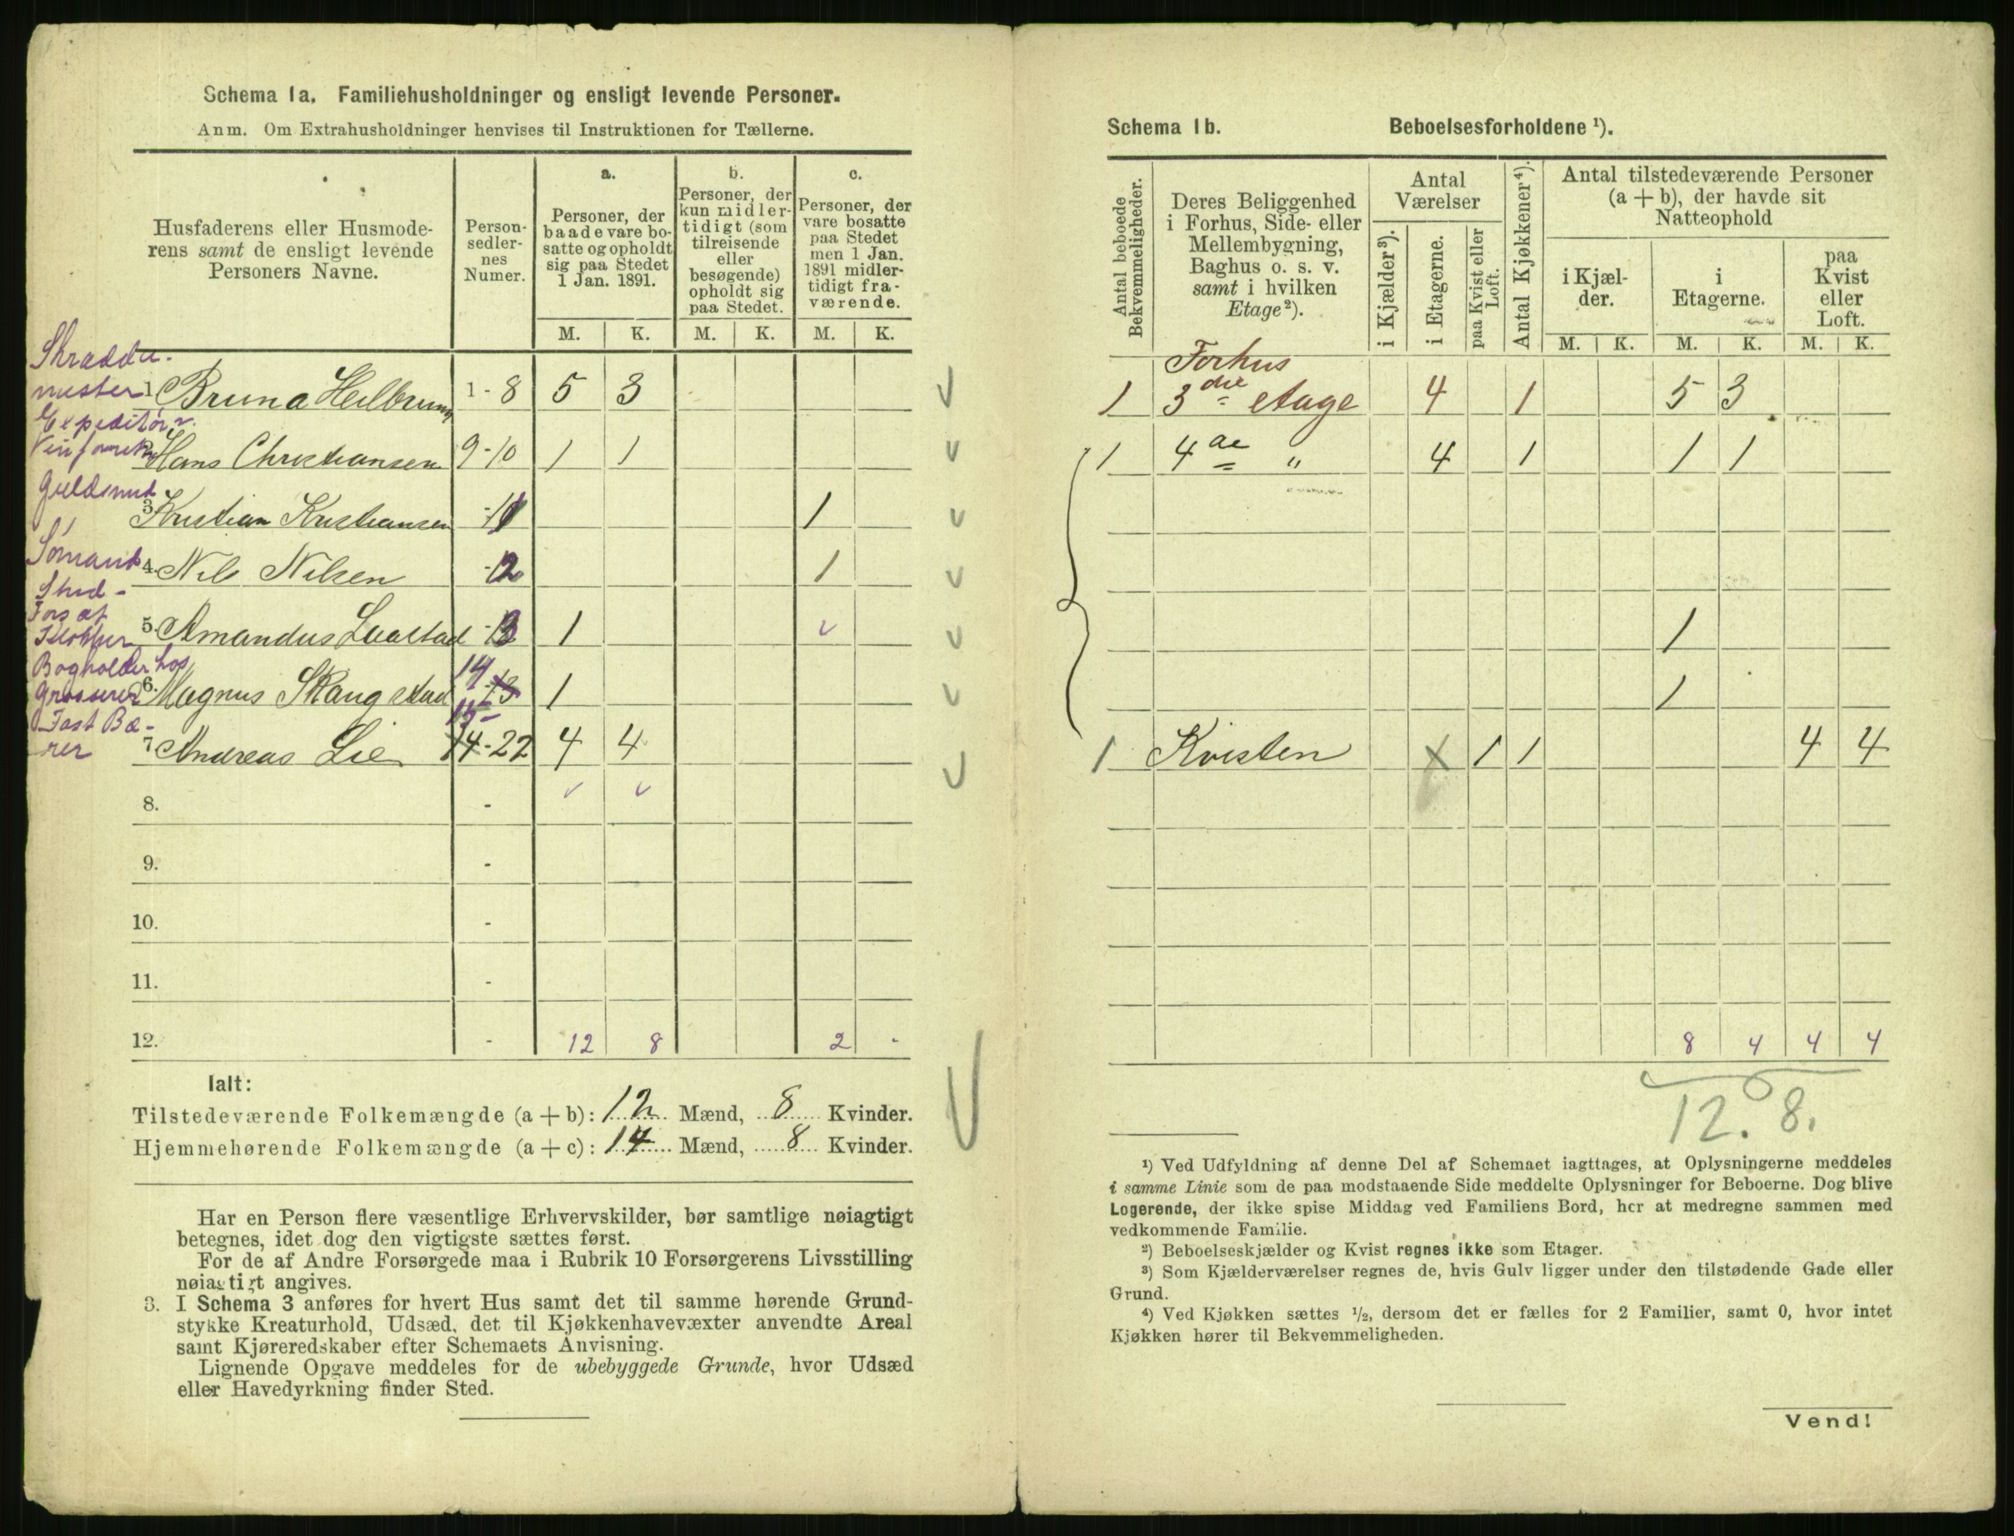 Schema 1a. Familiehusholdninger og ensligt levende Personer.
Anm. Om Extrahusholdninger henvises til Instruktionen for Tællerne.
Husfaderens eller Husmoderens samt de ensligt levende Personers Navne.
Personsedlernes Numer.
a.
Personer, der baade vare bosatte og opholdt sig paa Stedet 1 Jan. 1891.
b.
Personer, der kun midlertidigt (som tilreisende eller besøgende) opholdt sig paa Stedet.
c.
Personer, der vare bosatte paa Stedet men 1 Jan. 1891 midlertidigt fraværende.
M. K. M. K. M. K.
1 Bruno Heilbrunn 1-8 5 3
Hans Christiansen 9-10 1 1
3 Kristian Kristiansen -11 1
Sømand
4. Nils Nilsen -12 1
Stud -
5. Amandus -13 1
Bogholder hos
Grosserer
6. Magnus Skaugstad 14 -13 1
Fast Bæ-
rer
15
7 Andreas Lie 14-22 4 4
8. -
9. -
10. -
11. -
12. - 12 8 2 -
Ialt:
Tilstedeværende Folkemængde (a + b): 12 Mænd, 8 Kvinder.
Hjemmehørende Folkemængde (a + c): 14 Mænd, 8 Kvinder.
Har en Person flere væsentlige Erhvervskilder, bør samtlige nøiagtigt
betegnes, idet dog den vigtigste sættes først.
For de af Andre Forsørgede maa i Rubrik 10 Forsørgerens Livsstilling
nøiagtigt angives.
3. I Schema 3 anføres for hvert Hus samt det til samme hørende Grund-
stykke Kreaturhold, Udsæd, det til Kjøkkenhavevæxter anvendte Areal
samt Kjøreredskaber efter Schemaets Anvisning.
Lignende Opgave meddeles for de ubebyggede Grunde, hvor Udsæd
eller Havedyrkning finder Sted.
Schema 1b. Beboelsesforholdene ¹).
Antal beboede Bekvemmeligheder.
Deres Beliggenhed i Forhus, Side- eller Mellembygning, Baghus o. s. v. samt i hvilken Etage²).
Antal Værelser
i Kjælder³).
i Etagerne.
paa Kvist eller Loft.
Antal Kjøkkener⁴).
Antal tilstedeværende Personer (a + b), der havde sit Natteophold
i Kjælder.
i Etagerne.
paa Kvist eller Loft.
M. K. M. K. M. K.
Forhus
1 3die etage 4 1 5 3
1 4de " 4 1 1 1
1
1
1 Kvisten x 1 1 4 4
8 4 4 4
12. 8.
¹) Ved Udfyldning af denne Del af Schemaet iagttages, at Oplysningerne meddeles
i samme Linie som de paa modstaaende Side meddelte Oplysninger for Beboerne. Dog blive
Logerende, der ikke spise Middag ved Familiens Bord, her at medregne sammen med
vedkommende Familie.
²) Beboelseskjælder og Kvist regnes ikke som Etager.
³) Som Kjælderværelser regnes de, hvis Gulv ligger under den tilstødende Gade eller
Grund.
⁴) Ved Kjøkken sættes ¹/₂, dersom det er fælles for 2 Familier, samt 0, hvor intet
Kjøkken hører til Bekvemmeligheden.
Vend!